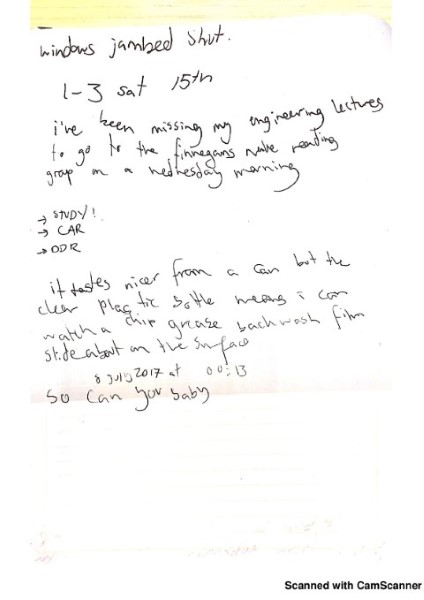 windows jambed shut.
1-3 sat 15th
i've been missing my engineering lectures
to go to the finnegans wake reading
group on a wednesday morning
→ STUDY!
→ CAR
→ ODR
it tastes nicer from a can but the
clear plastic bottle means i can
watch a chip grease backwash film
slide about on the surface
8 july 2017 at 00:13
so can your baby
Scanned with CamScanner